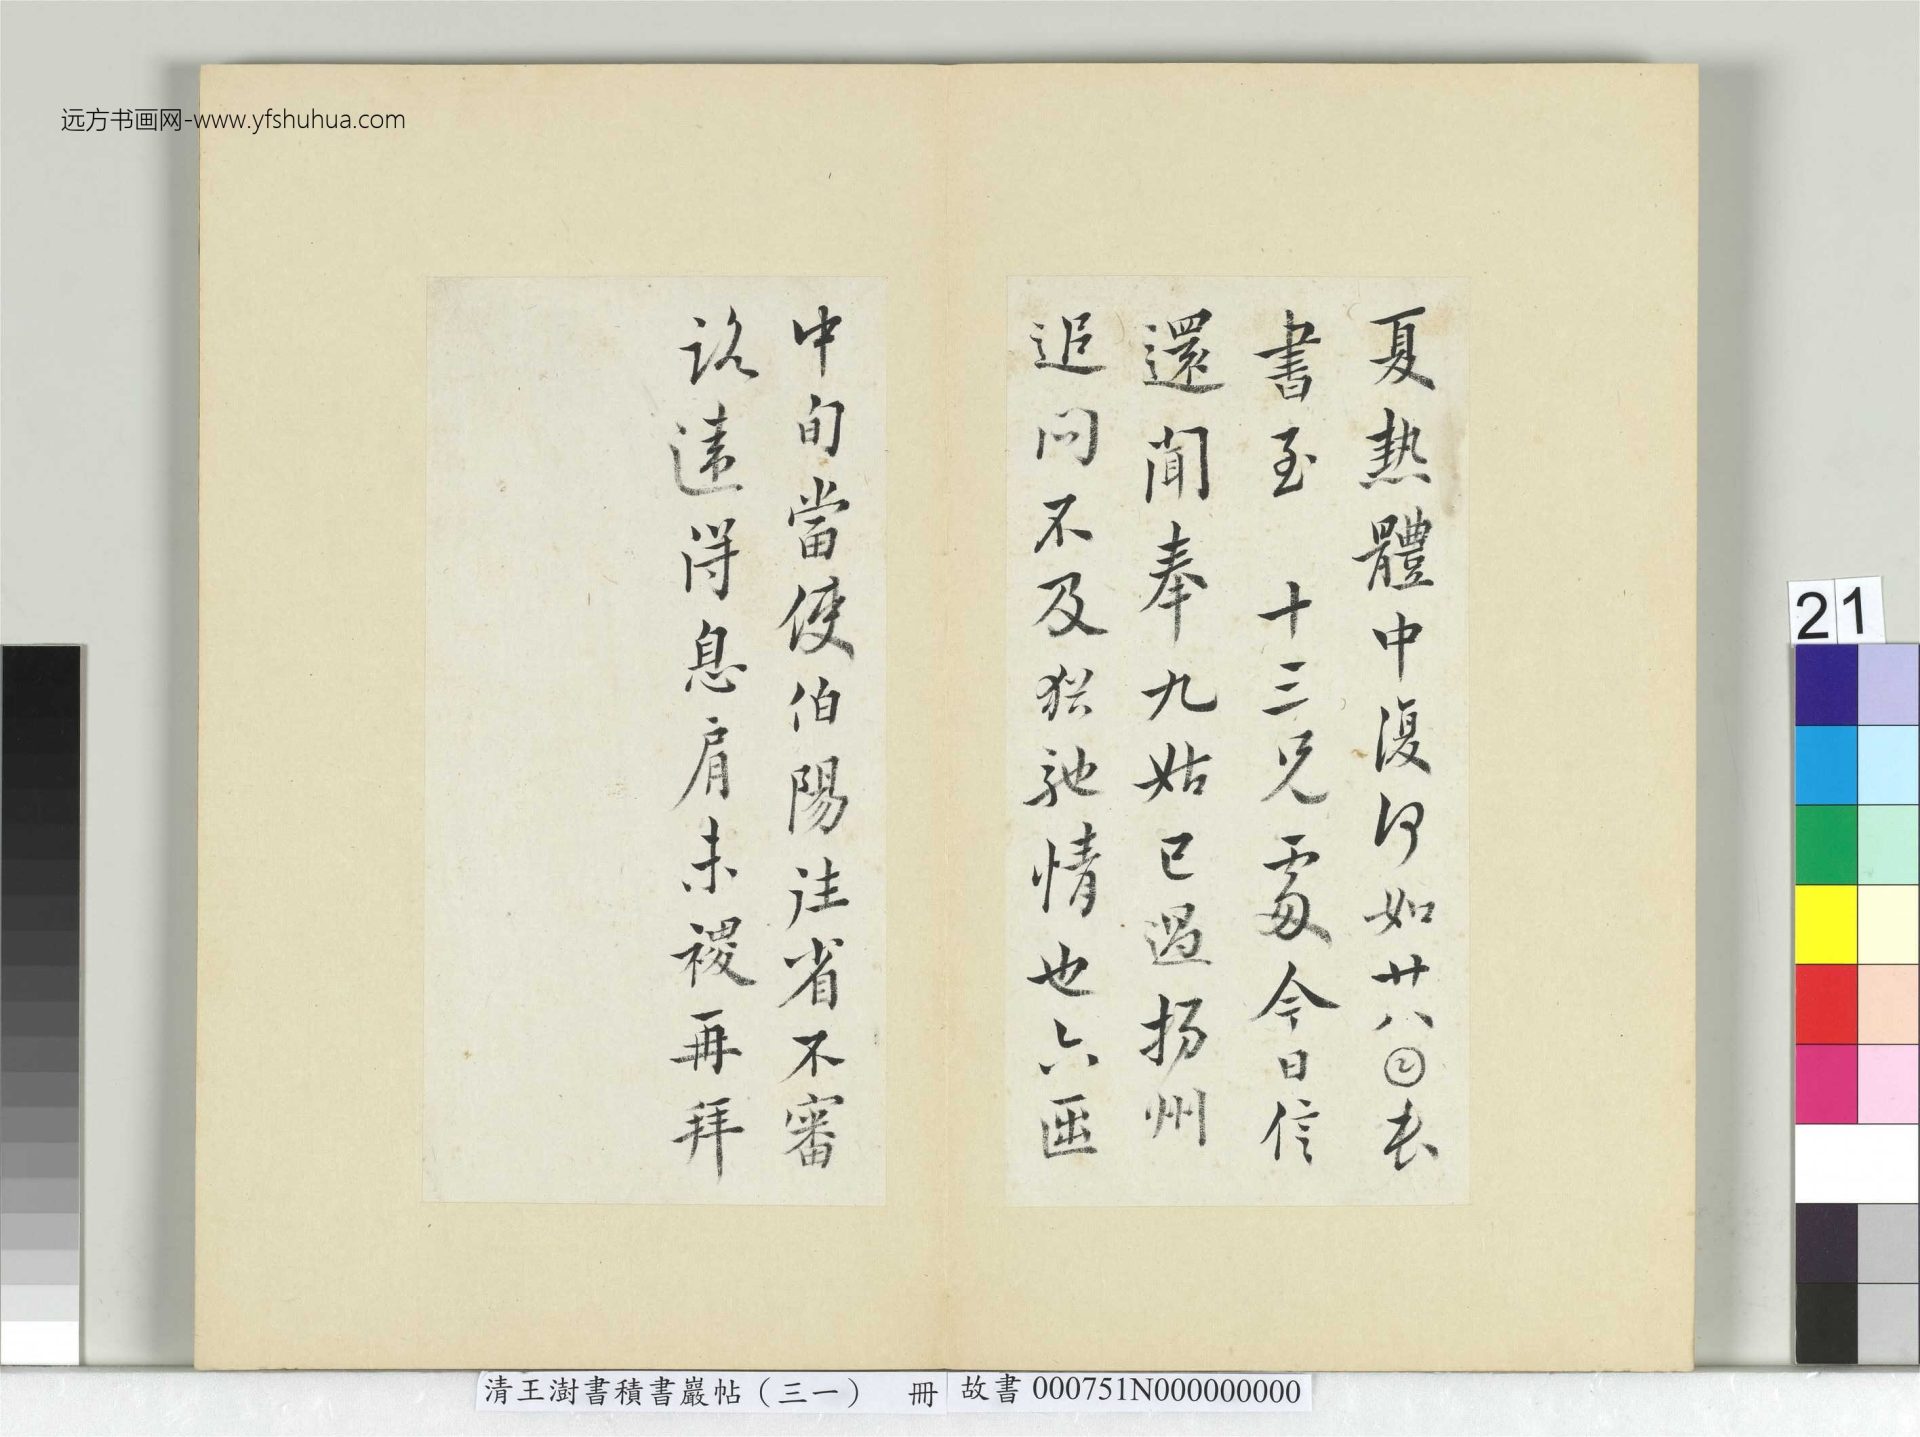 远方书画网-www.yfshuhua.com
夏熱體中復何如廿八𡆠
書至 十三兄處今日信
還聞奉九姑已過揚州
追問不及猶馳情也六𠥱
中旬當使伯陽往省不審
路遠得息肩未禝再拜
清王澍書積書巖帖（三一） 冊 故書 000751N000000000
21